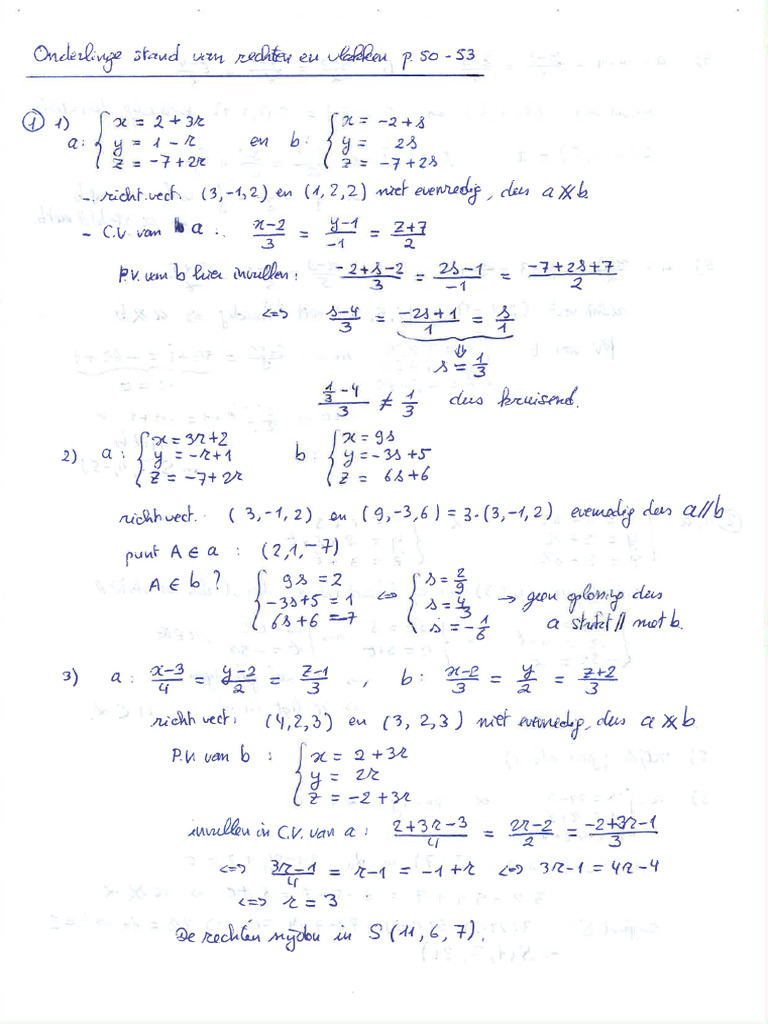 Onderlinge stand van rechten en vlakken p. 50 - 53
① 1) a: { x = 2 + 3r en b: { x = -2 + s
y = 1 - r y = 2s
z = -7 + 2r z = -7 + 2s
- richt.vect. (3, -1, 2) en (1, 2, 2) niet evenredig, dus a ∦ b
- C.V. van a : (x-2)/3 = (y-1)/-1 = (z+7)/2
P.V. van b hier invullen: (-2+s-2)/3 = (2s-1)/-1 = (-7+2s+7)/2
<=> (s-4)/3 = (-2s+1)/1 = s/1
⇓
s = 1/3
(1/3 - 4)/3 ≠ 1/3 dus kruisend.
2) a: { x = 3r+2 b: { x = 9s
y = -r+1 y = -3s+5
z = -7+2r z = 6s+6
richtvect. (3, -1, 2) en (9, -3, 6) = 3·(3, -1, 2) evenredig dus a // b
punt A ∈ a : (2, 1, -7)
A ∈ b ? { 9s = 2 <=> { s = 2/9
-3s+5 = 1 s = 4/3 → geen oplossing dus
6s+6 = -7 s = -1/6 a strikt // met b.
3) a: (x-3)/4 = (y-2)/2 = (z-1)/3 , b: (x-2)/3 = y/2 = (z+2)/3
richtvect. (4, 2, 3) en (3, 2, 3) niet evenredig, dus a ∦ b
P.V. van b : { x = 2 + 3r
y = 2r
z = -2 + 3r
invullen in C.V. van a : (2+3r-3)/4 = (2r-2)/2 = (-2+3r-1)/3
<=> (3r-1)/4 = r-1 = -1+r <=> 3r-1 = 4r-4
<=> r = 3
De rechten snijden in S (11, 6, 7).